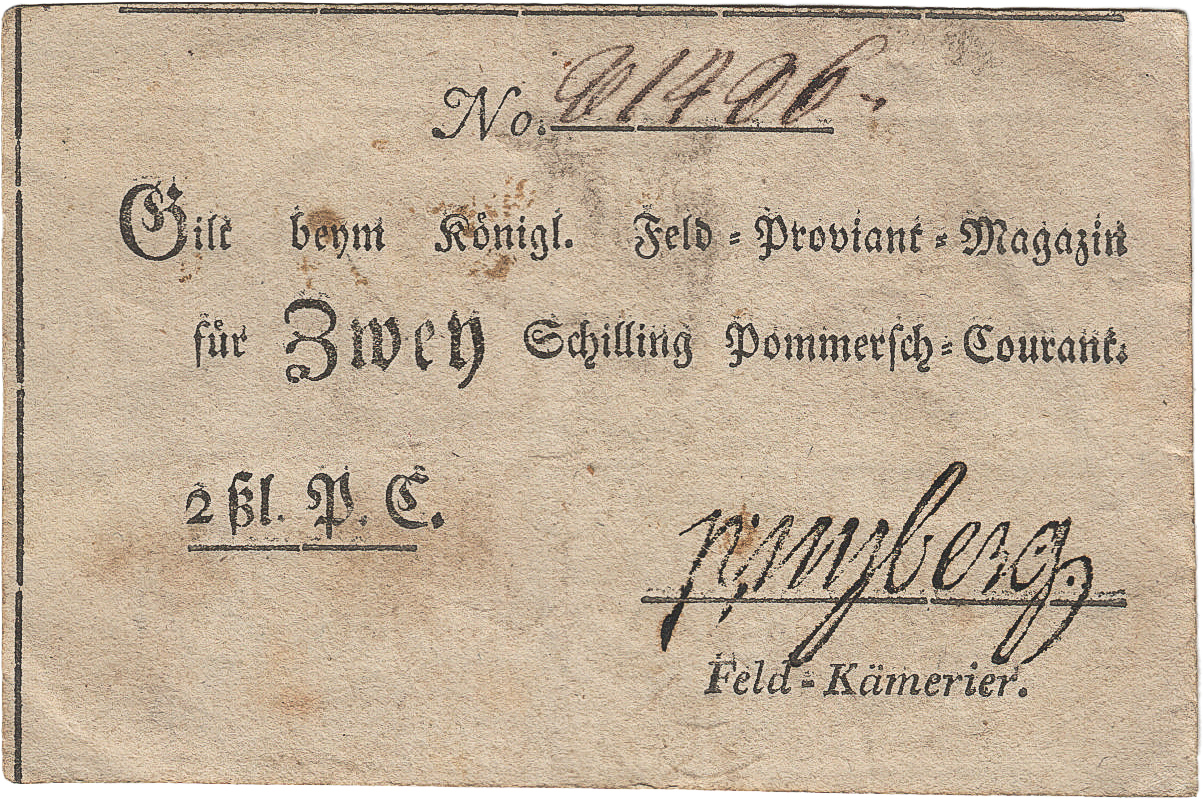 No. 01406.
Gilt beym Königl. Feld-Proviant-Magazin
für Zwey Schilling Pommersch-Courant.
2 ßl. P. C.
Feld-Kämerier.